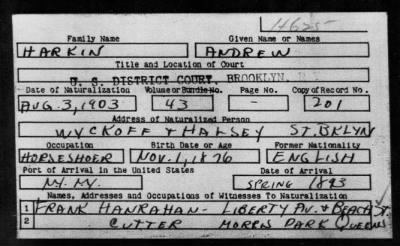 Family Name Given Name or Names
HARKIN ANDREW
Title and Location of Court
U. S. DISTRICT COURT, BROOKLYN, N.Y.
Date of Naturalization Volume or Bundle No. Page No. Copy of Record No.
AUG. 3, 1903 43 - 201
Address of Naturalized Person
WYCKOFF + HALSEY ST. BKLYN
Occupation Birth Date or Age Former Nationality
HORSESHOER NOV. 1, 1876 ENGLISH
Port of Arrival in the United States Date of Arrival
N.Y. N.Y. SPRING 1893
Names, Addresses and Occupations of Witnesses To Naturalization
1 FRANK HANRAHAN - LIBERTY AV. + BEACH ST.
2 CUTTER MORRIS PARK QUEENS